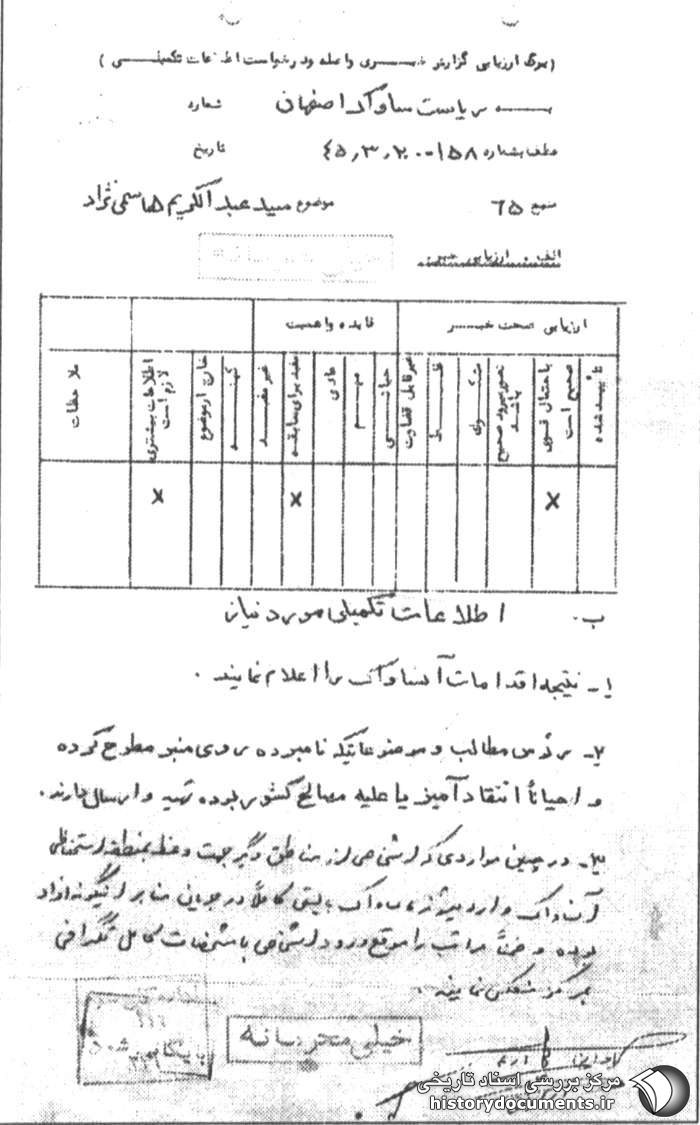 (برگ ارزیابی گزارش خبری واصله ودرخواست اطلاعات تکمیلی)
به ریاست ساواک اصفهان شماره
عطف بشماره ۱۵۸-۴۵٫۳٫۲۰ تاریخ
منبع ۶۵ موضوع سید عبدالکریم هاشمی نژاد
الف. ارزیابی خبر:
ارزیابی صحت خبر فایده واهمیت
تأیید شده
باحتمال قوی صحیح است
تصورمیرود صحیح باشد
مشکوک
غلط
غیرقابل قضاوت
حیاتی
مهم
عادی
مفید برای سابقه
غیر مفید
کهنه
خارج ازموضوع
اطلاعات بیشتری لازم است
ملاحظات
x x x
ب. اطلاعات تکمیلی مورد نیاز
۱- نتیجه اقدامات آن ساواک را اعلام نمایند.
۲- رئوس مطالب و موضوعاتیکه نامبرده روی منبر مطرح کرده
و احیاناً انتقاد آمیز یا علیه مصالح کشور بوده تهیه و ارسال دارند.
۳- در چنین مواردی که اشخاصی از مناطق دیگر جهت وعظ بمنطقه استحفاظی
آن ساواک وارد میشوند، ساواک بایستی کاملاً در جریان منابر اینگونه افراد
بوده و ضمناً مراتب را موقع ورود اشخاص با مشخصات کامل تلگرافی
بمرکز منعکس نمایند.
خیلی محرمانه
بایگانی شد
مرکز بررسی اسناد تاریخی
historydocuments.ir